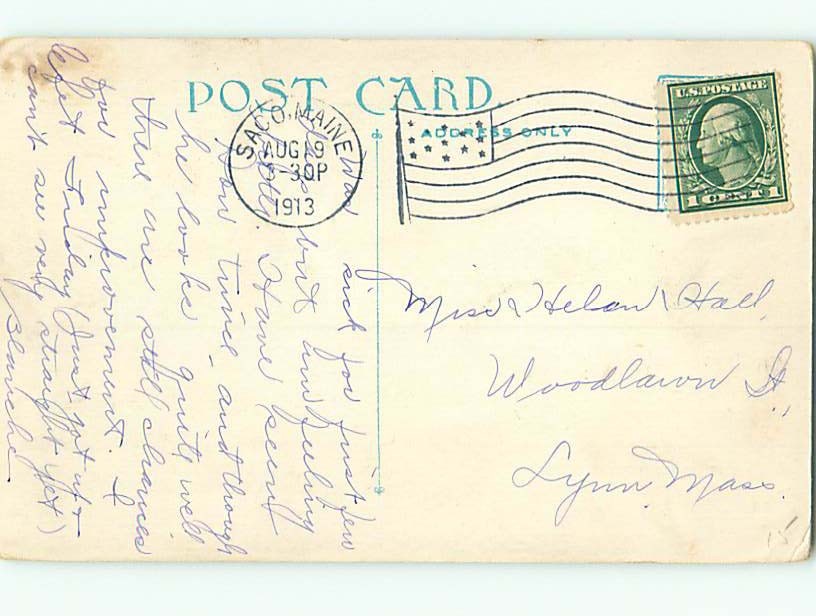 POST CARD.
ADDRESS ONLY
SACO, MAINE
AUG 19
30P
1913
U.S. POSTAGE
1 CENT 1
Miss Helan Hall,
Woodlawn St.,
Lynn, Mass.
Was sick for just few
but am feeling
. Have seen
time - and though
he looks quite well
there are still chances
for improvement. I
left Friday (Just got up &
can't see very straight yet)
Blanche
15